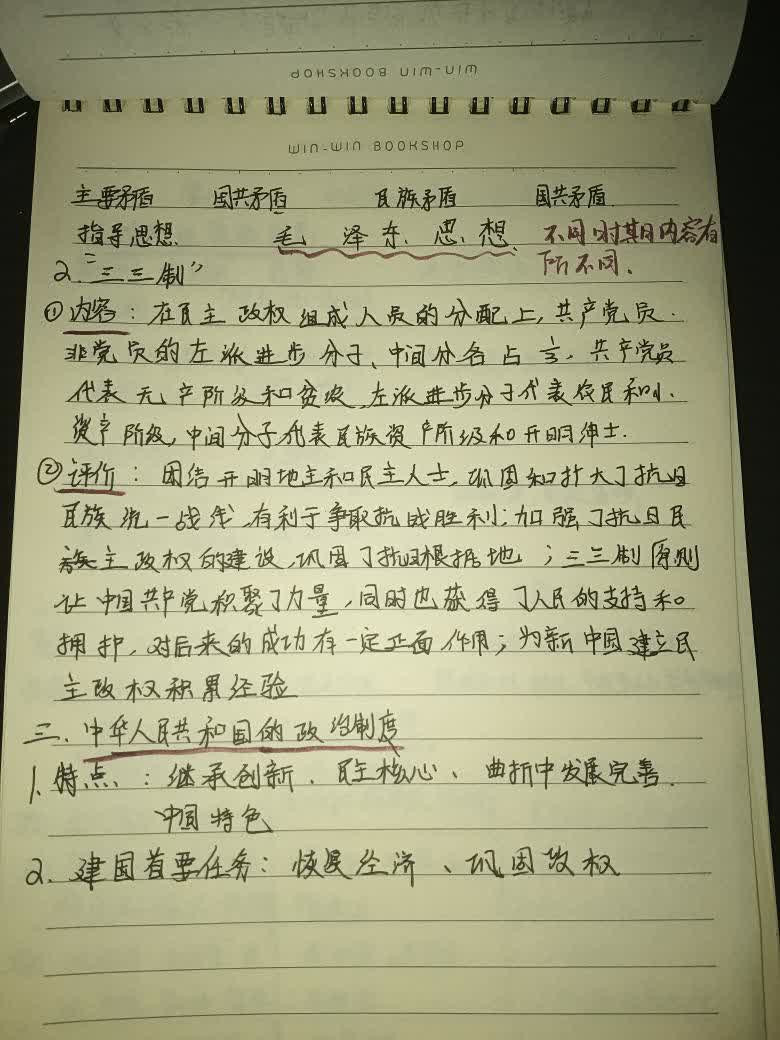 WIN-WIN BOOKSHOP
WIN-WIN BOOKSHOP
主要矛盾 国共矛盾 民族矛盾 国共矛盾
指导思想 毛泽东思想 不同时期内容有
所不同.
2.“三三制”
①内容：在民主政权组成人员的分配上，共产党员.
非党员的左派进步分子、中间分各占⅓，共产党员
代表无产阶级和贫农，左派进步分子代表农民和小
资产阶级，中间分子代表民族资产阶级和开明绅士.
②评价：团结开明地主和民主人士，巩固和扩大了抗日
民族统一战线，有利于争取抗战胜利；加强了抗日民
族主政权的建设，巩固了抗日根据地；三三制原则
让中国共中党积聚了力量，同时也获得了人民的支持和
拥护，对后来的成功有一定正面作用；为新中国建立民
主政权积累经验
三、中华人民共和国的政治制度
1.特点：继承创新、民主核心、曲折中发展完善.
中国特色
2.建国首要任务：恢复经济、巩固政权